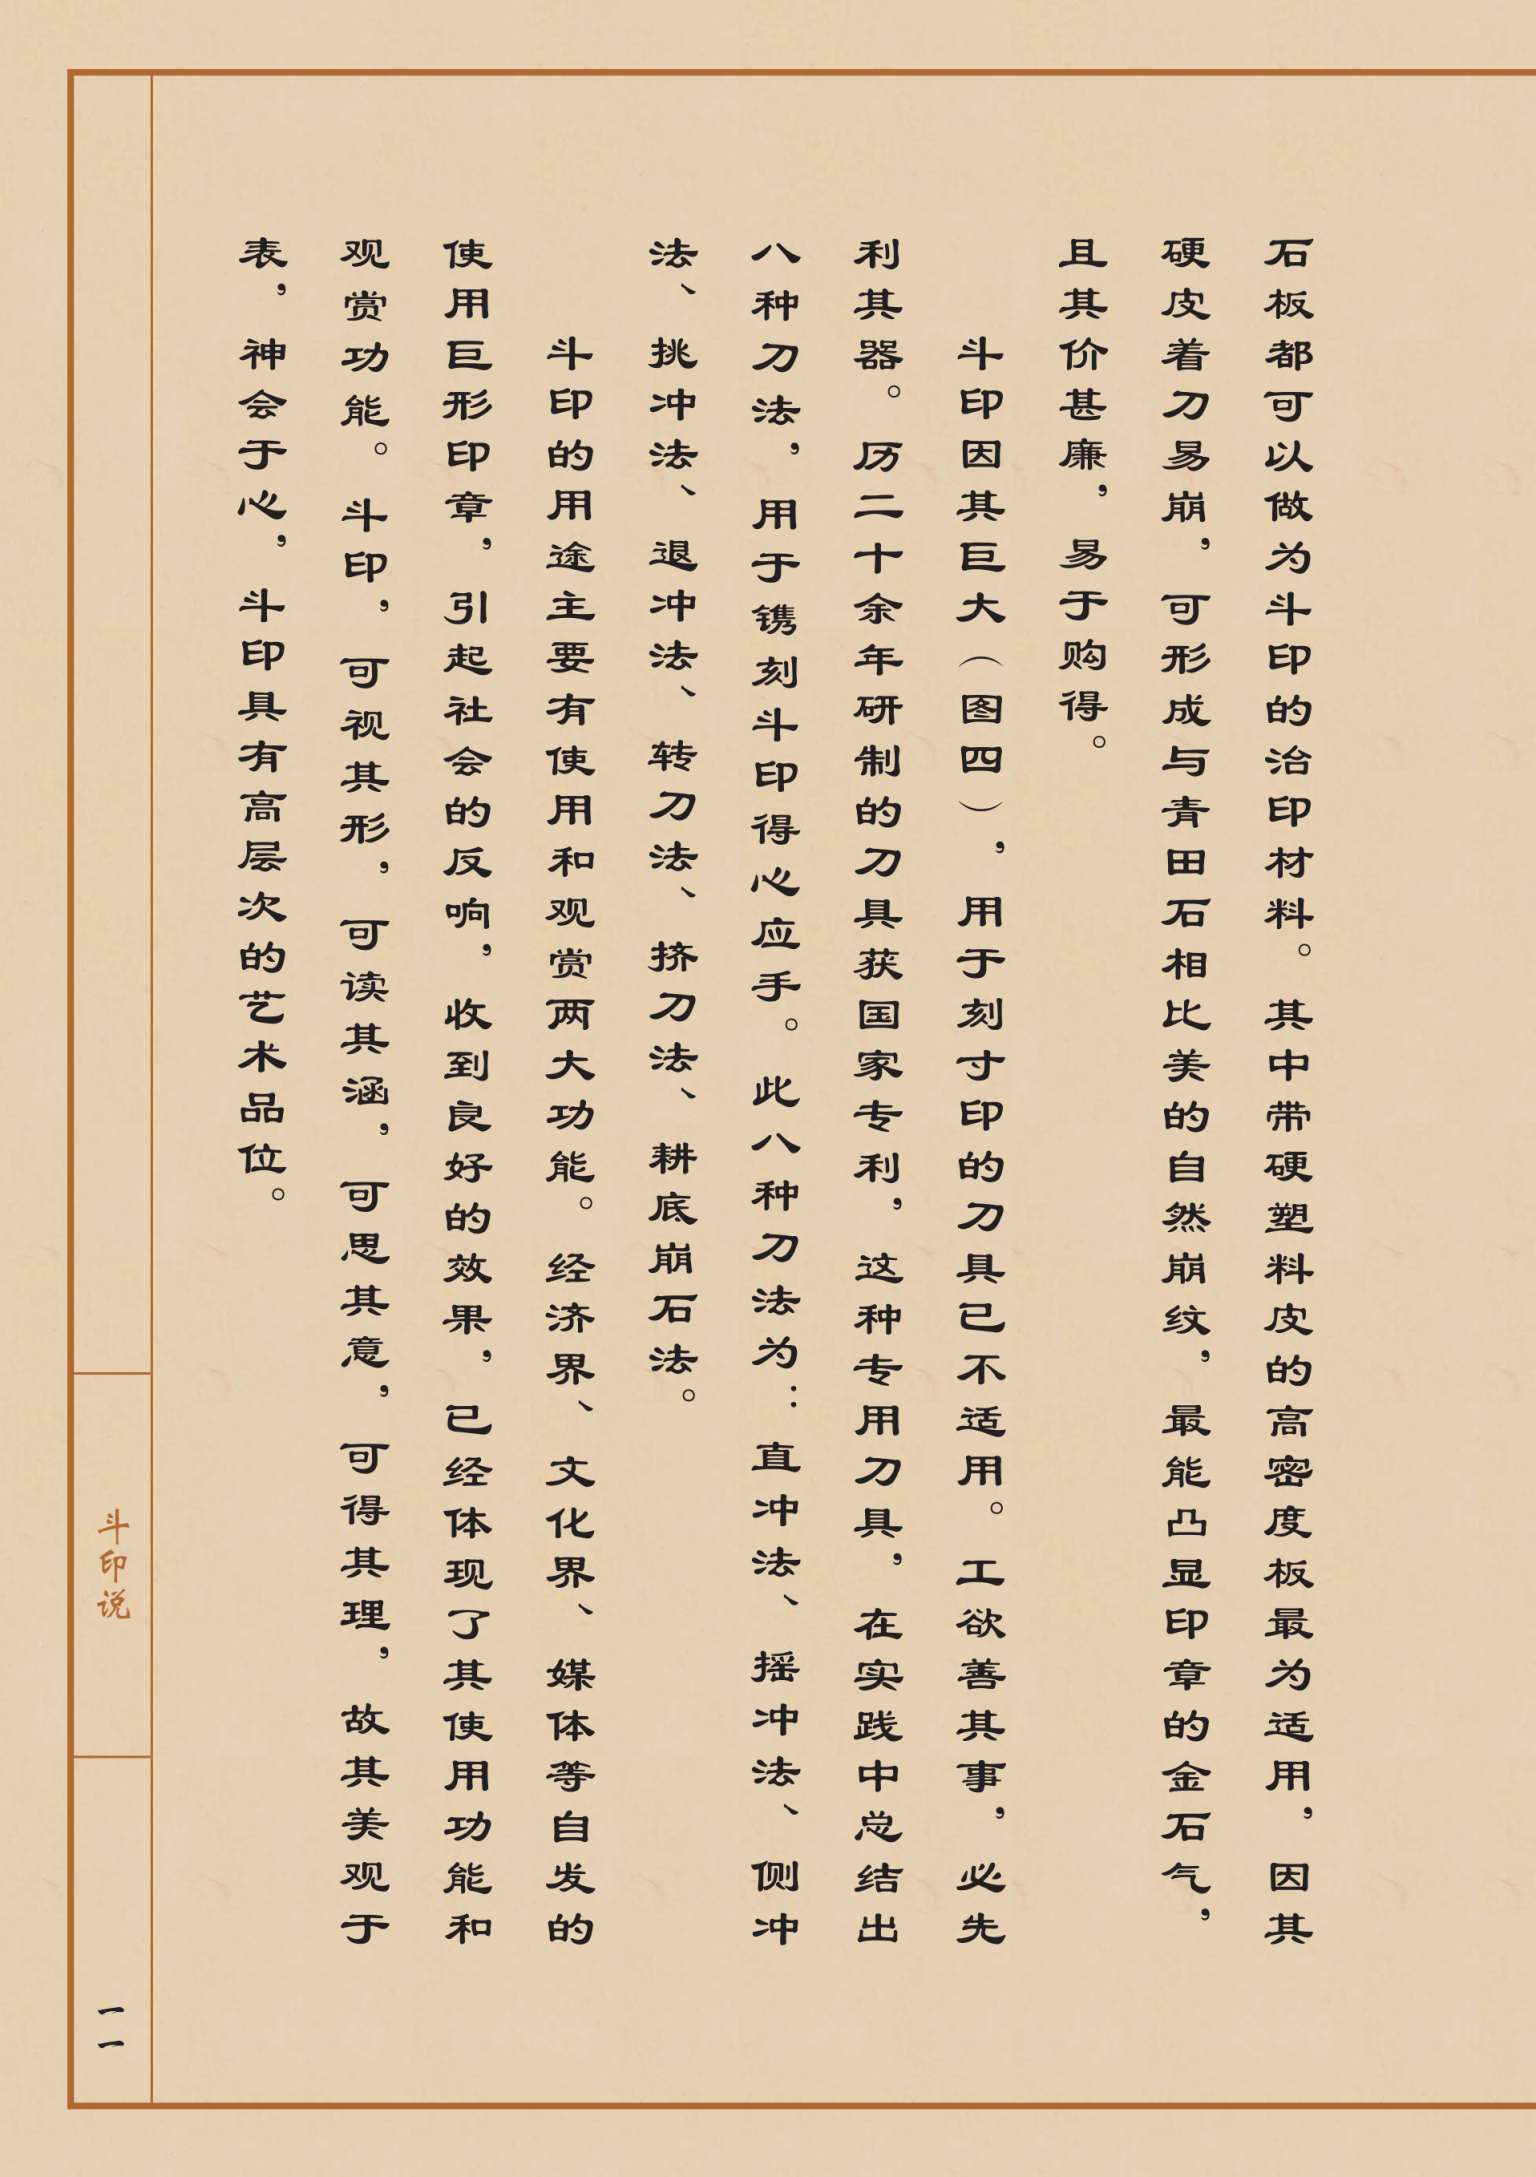 石板都可以做为斗印的治印材料。其中带硬塑料皮的高密度板最为适用，因其
硬皮着刀易崩，可形成与青田石相比美的自然崩纹，最能凸显印章的金石气，
且其价甚廉，易于购得。
斗印因其巨大（图四），用于刻寸印的刀具已不适用。工欲善其事，必先
利其器。历二十余年研制的刀具获国家专利，这种专用刀具，在实践中总结出
八种刀法，用于镌刻斗印得心应手。此八种刀法为：直冲法、摇冲法、侧冲
法、挑冲法、退冲法、转刀法、挤刀法、耕底崩石法。
斗印的用途主要有使用和观赏两大功能。经济界、文化界、媒体等自发的
使用巨形印章，引起社会的反响，收到良好的效果，已经体现了其使用功能和
观赏功能。斗印，可视其形，可读其涵，可思其意，可得其理，故其美观于
表，神会于心，斗印具有高层次的艺术品位。
斗印说
一一